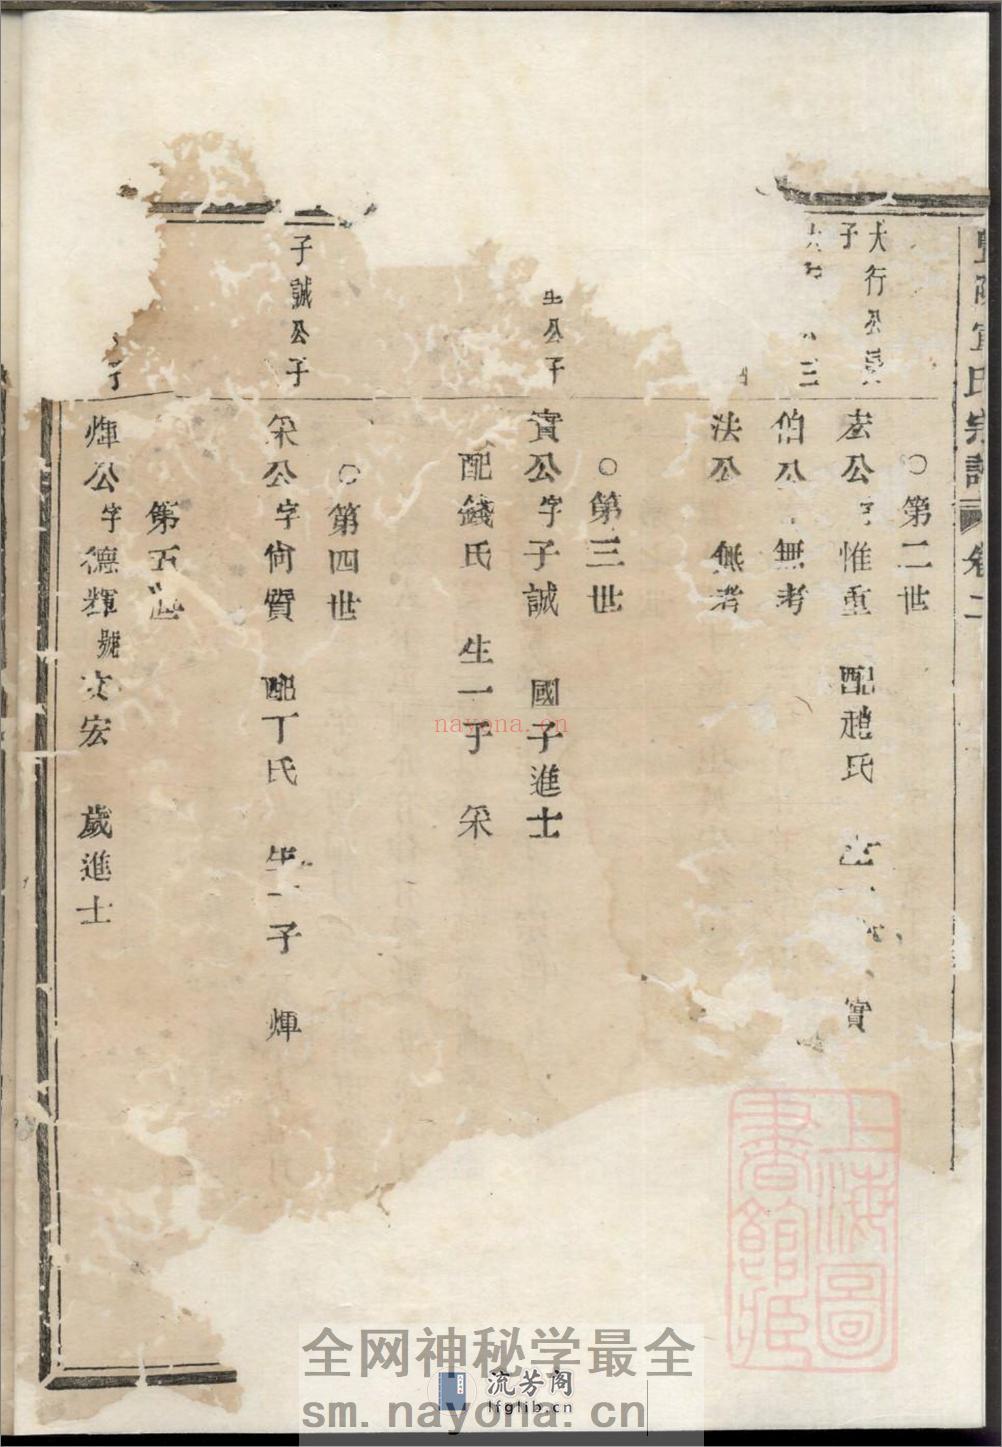 氏宗譜 卷二
○第二世
大行公長子
玄公字惟重 配趙氏 生 實
三
伯公 無考
法公 無考
○第三世
生公子
實公字子誠 國子進士
配錢氏 生一子 采
○第四世
子誠公子
采公字尚質 配丁氏 生一子 煇
第五世
煇公字德輝號文宏 歲進士
上海圖書館藏
nayona.cn
全网神秘学最全
流芳阁
lfglib.cn
sm.nayona.cn